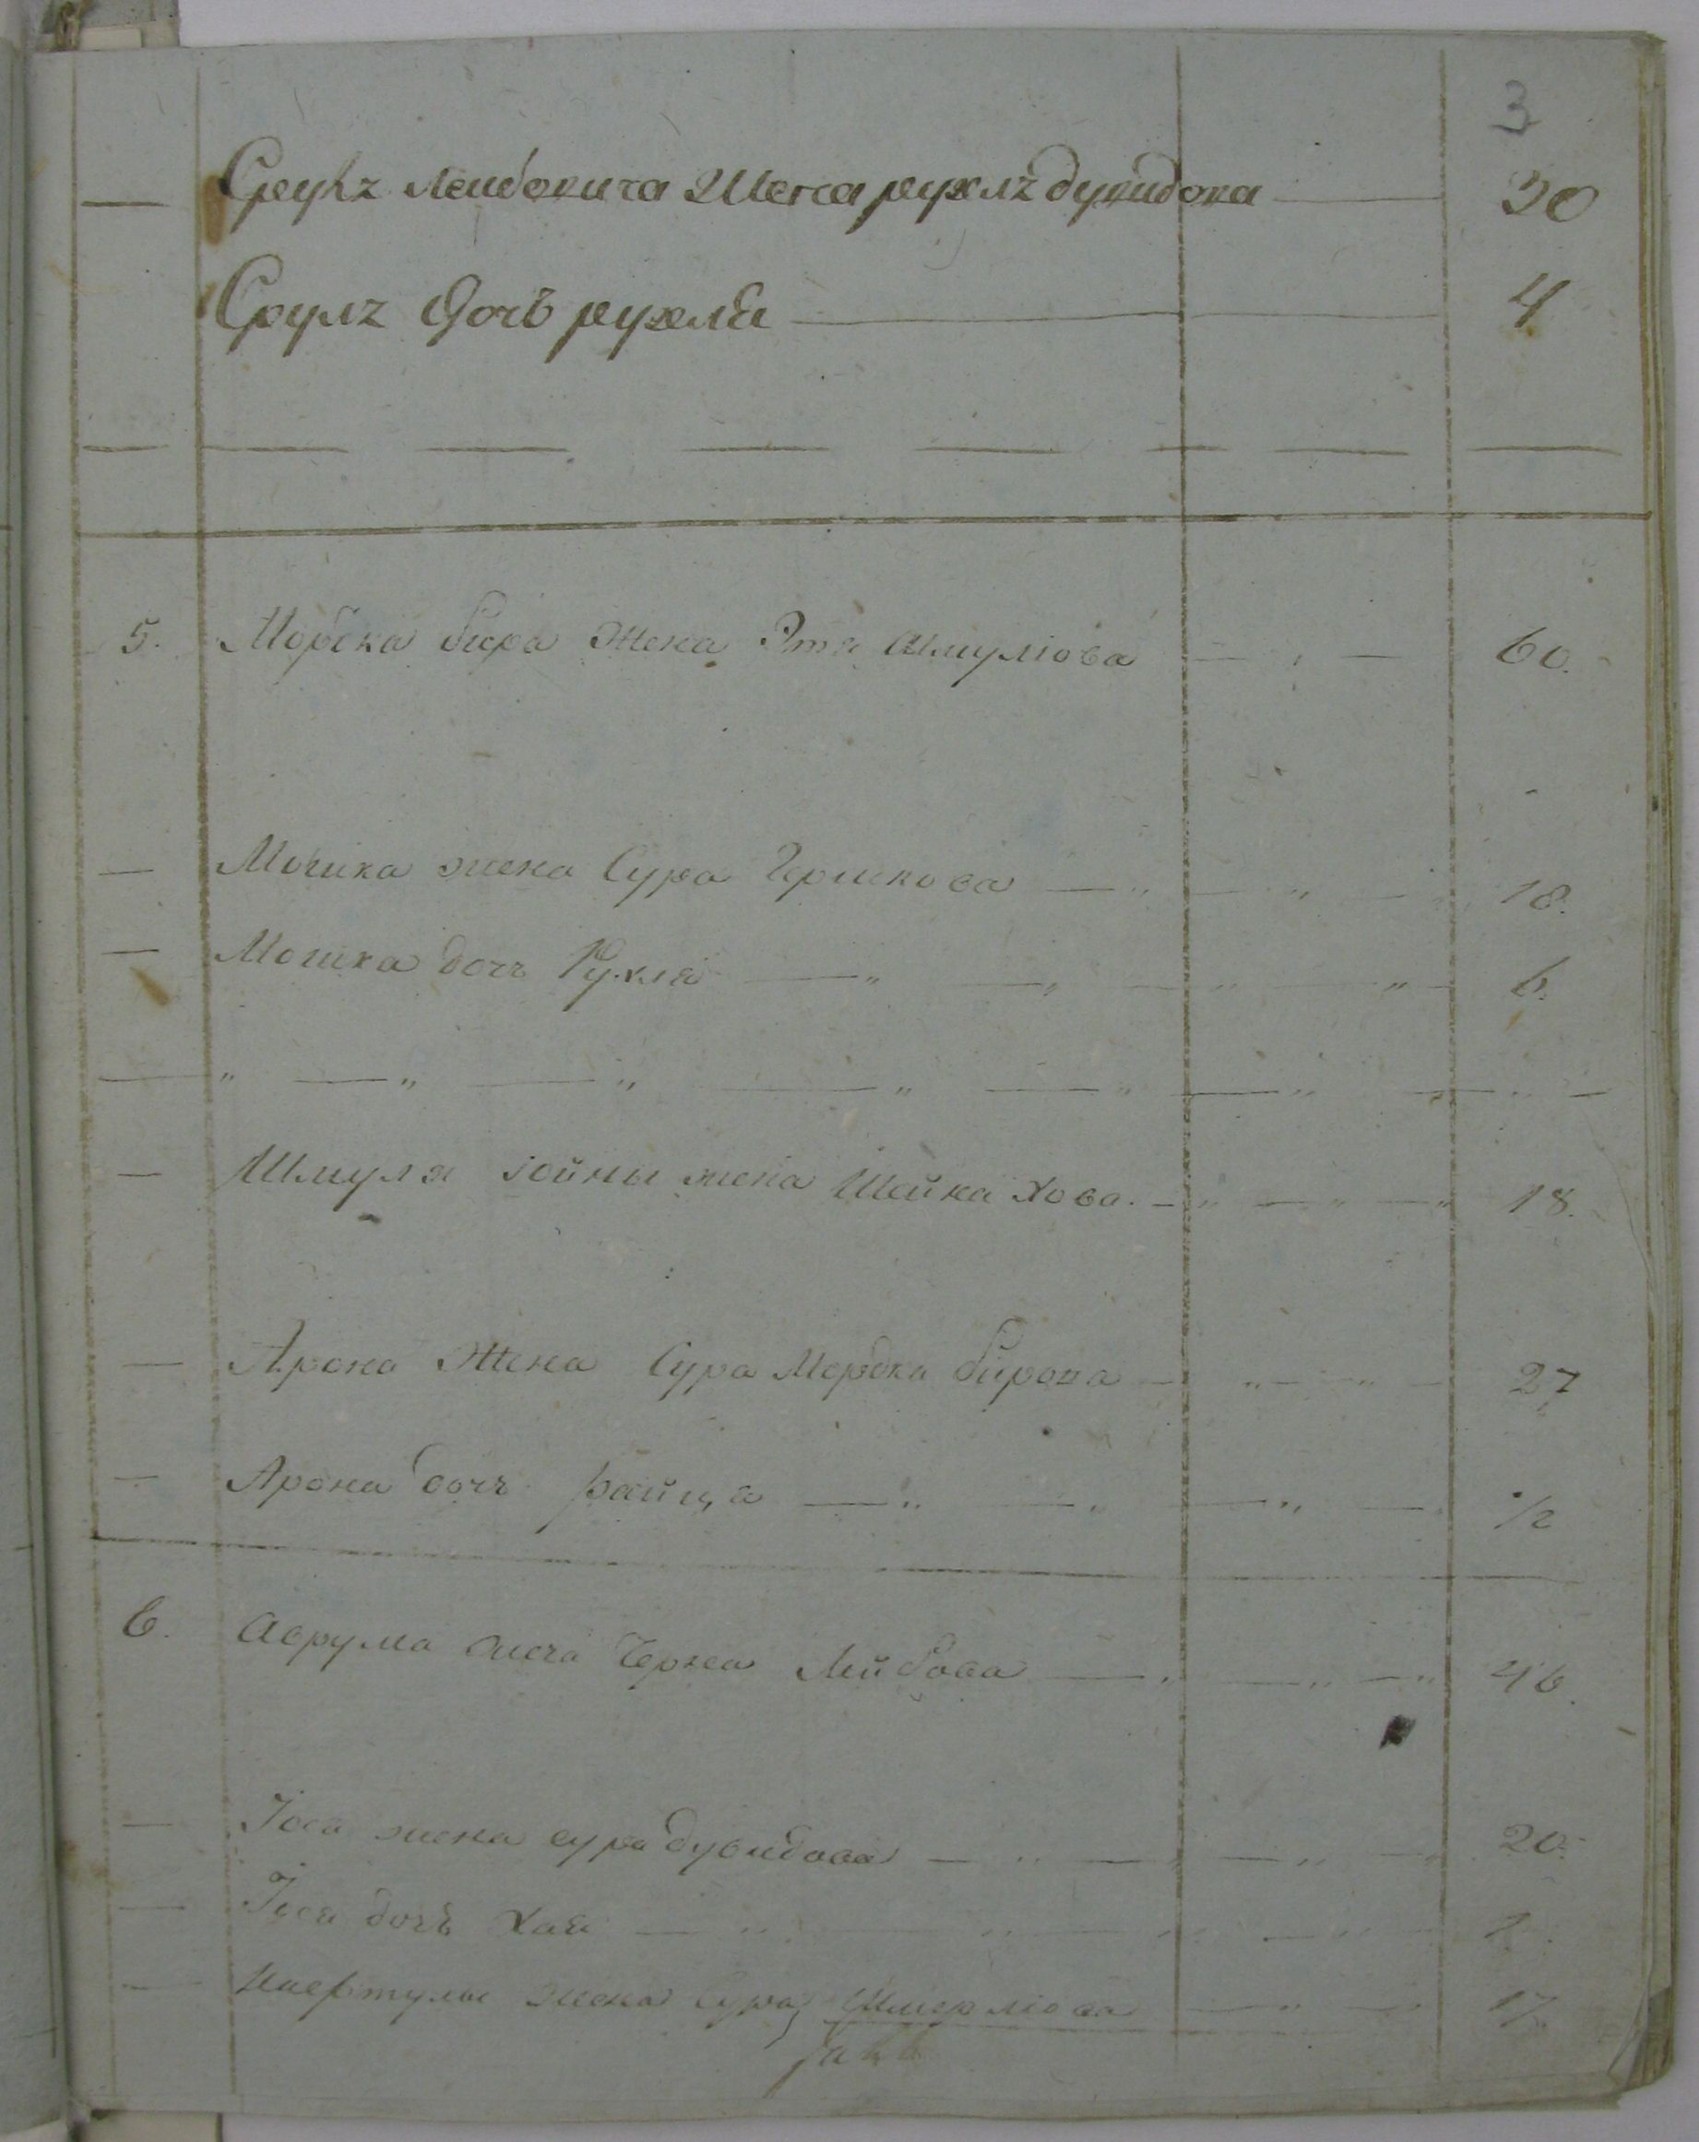 3
— Сруля Лейбовича Жена рухля дувидова — 30
Сруля дочь рухля — 4
— — — — — — — —
5. Мордка бера Жена Этя Шмулiова — 60.
— Мошка жена Сура Гершкова — 18.
— Мошка дочь Рухля — 6.
— Шмуля iойны жена Шейка Хова. — 18.
— Арона Жена Сура Мордка бирова — 27
— Арона дочь Райца — 1/2
6. Аврума жена Черна Лейбова — 46.
— Іося жена сура дувидова — 20.
— Іося дочь Хая —
— Нафтулы жена Сура Шмерлiова — 17